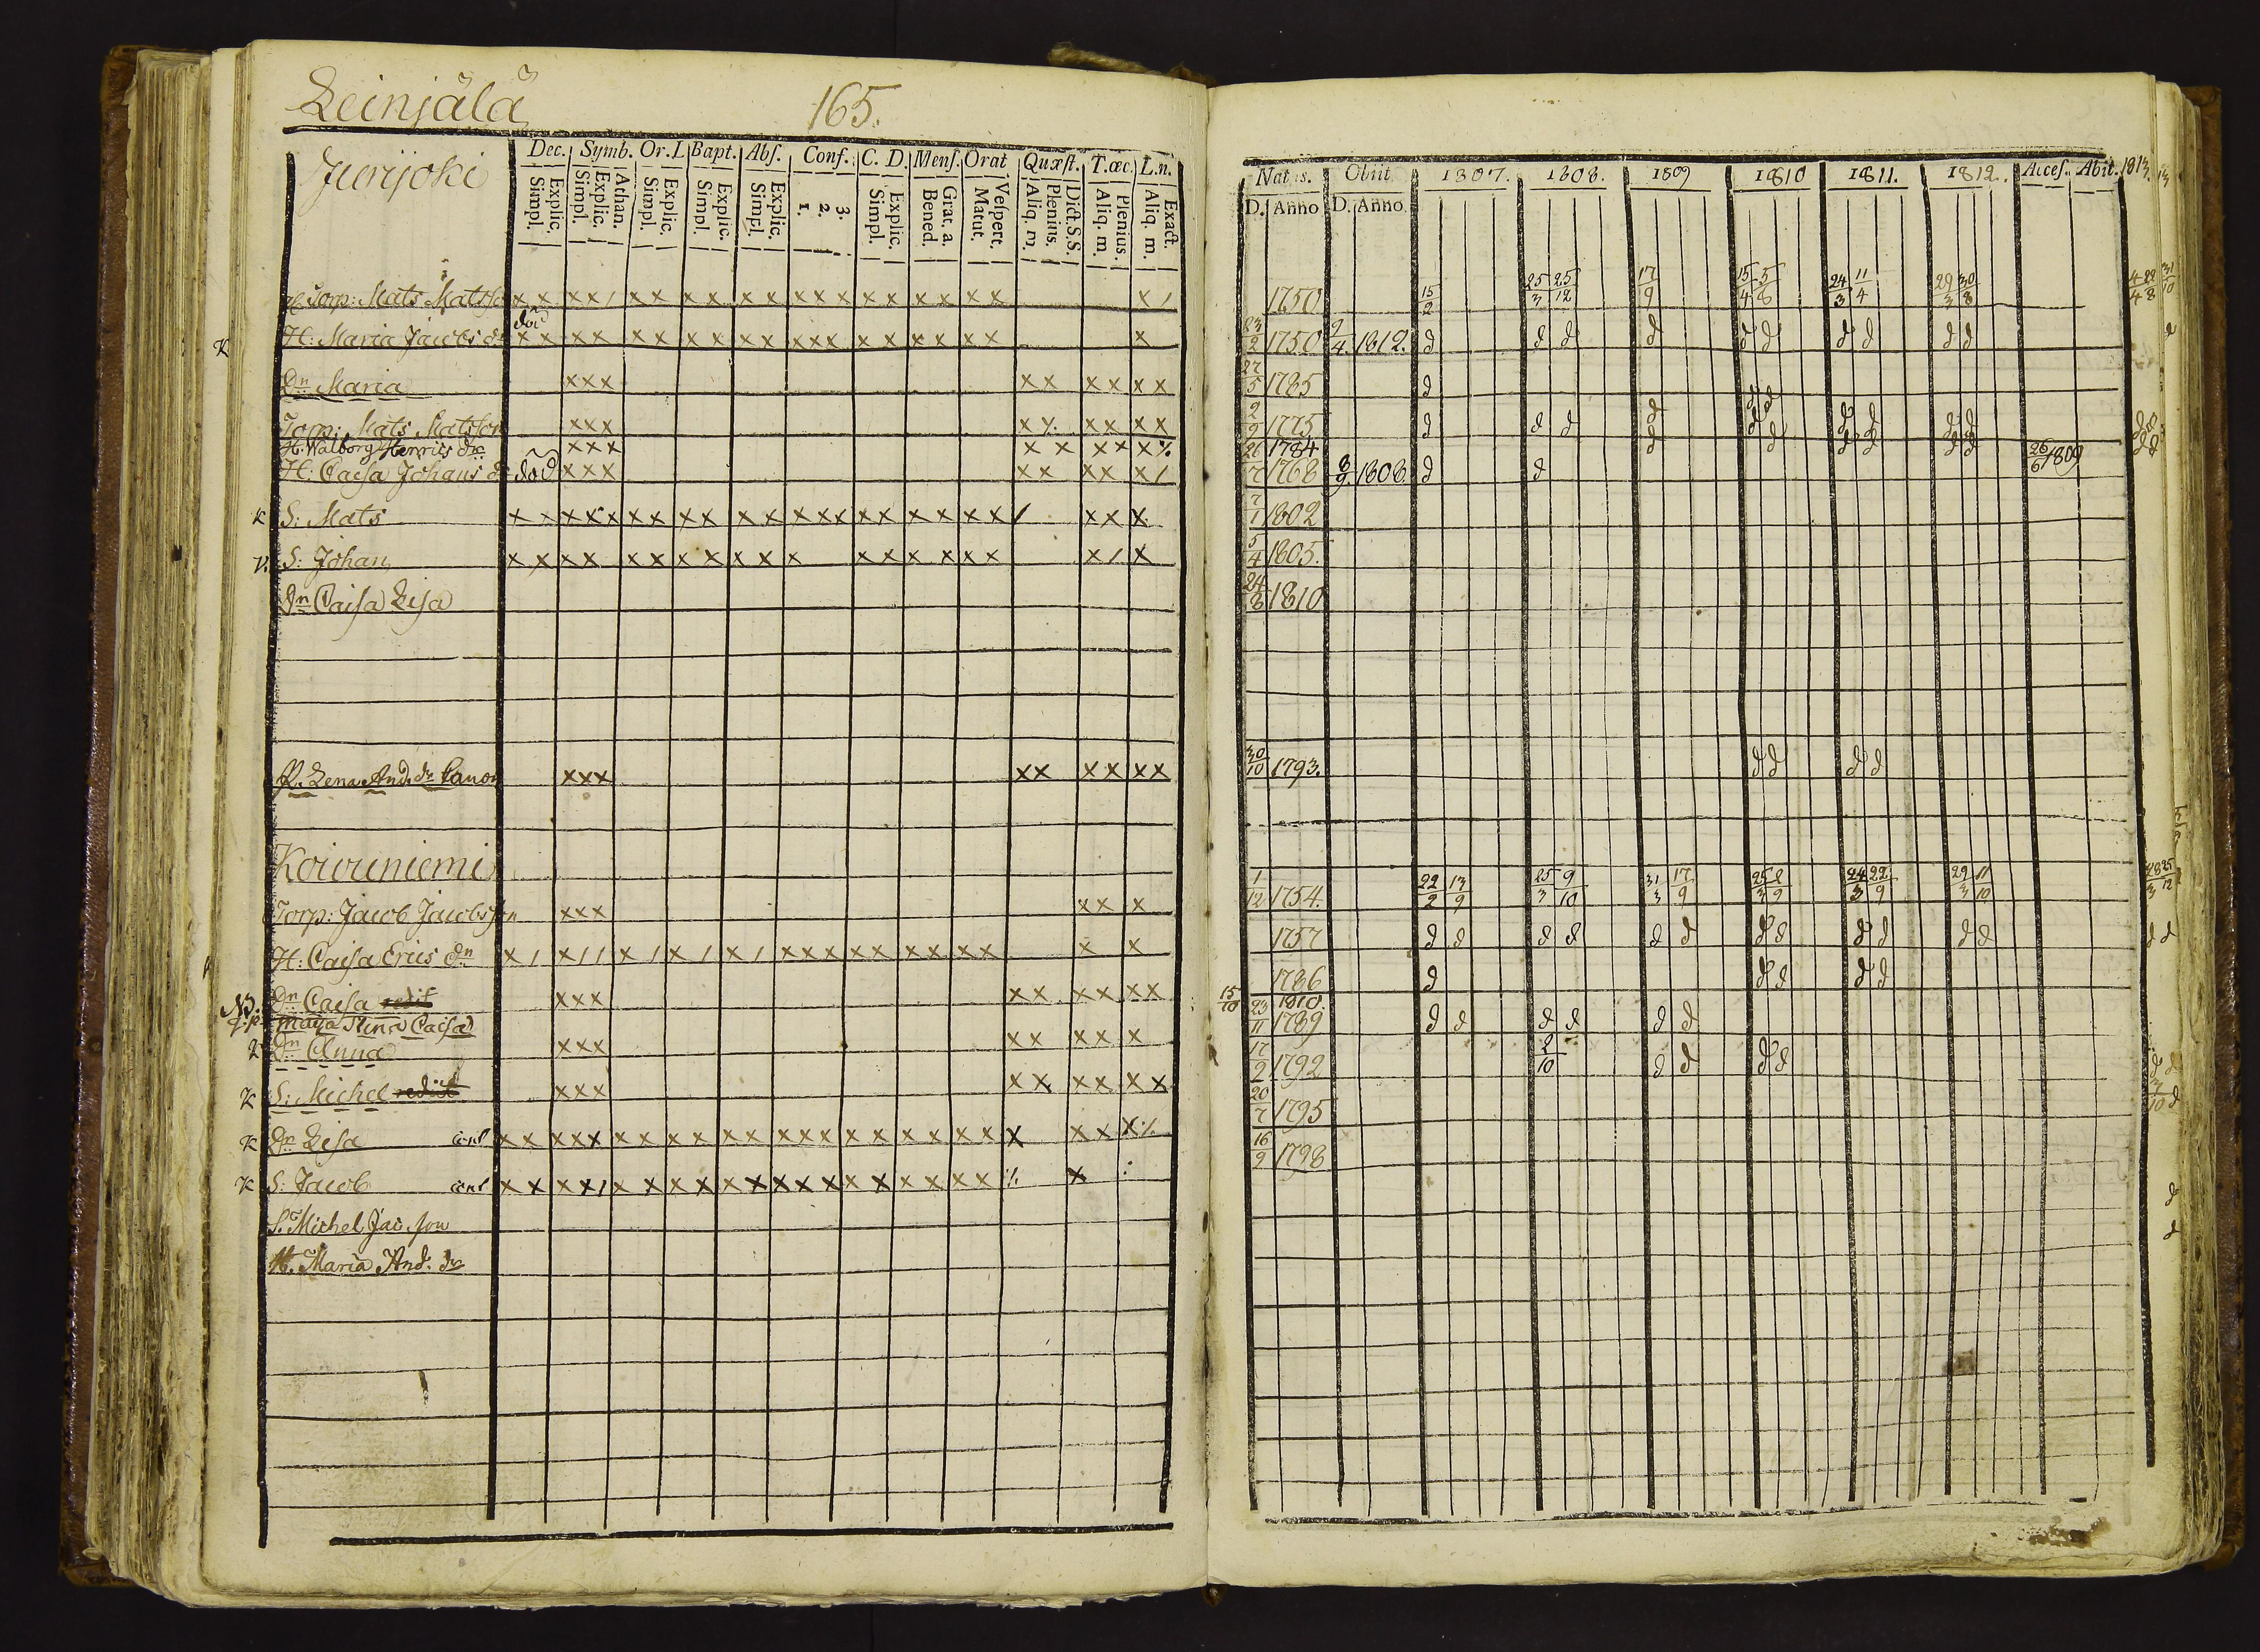 Leinjälä 165.
Jurijoki
Dec. Symb. Or.L Bapt. Abſ. Conf. C. D. Menſ. Orat Quæſt. T. œc. L.n.
Explic. Simpl. Athan. Explic. Simpl. Explic. Simpl. Explic. Simpl. Explic. Simpl. 3. 2. 1. Explic. Simpl. Grat. a. Bened. Veſpert. Matut. Dict. S.S. Plenius. Aliq. m. Plenius. Aliq. m. Exact. Aliq. m.
Torp: Mats Matsso x x x x / x x x x x x x x x x x x x x x x /
död
K H: Maria Jacobs dr x x x x x x x x x x x x x x x x x x x x
Dn Maria x x x x x x x x x
Torp: Mats Matsson x x x x ٪ x x x x
H. Walborg Henrics dr x x x x x x x x ٪
H: Caisa Johans dr död x x x x x x x x /
K S: Mats x x x x x x x x x x x x x x x x x x x x / x x x
V. S: Johan x x x x x x x x x x x x x x x x x x / x
Dn Caisa Lisa
P. Lena And. dr Canon x x x x x x x x x
Koivuniemi
Torp: Jacob Jacobsson x x x x x x
H: Caisa Erics dn x / x / / x / x / x / x x x x x x x x x x x
NB. Dn Caisa redit x x x x x x x x x
Maija Stina Caisa
Dn Anna x x x x x x x x
K S: Michel redit x x x x x x x x x
K Dn Lisa cont x x x x x x x x x x x x x x x x x x x x x x x x ٪
K S: Jacob cont x x x x / x x x x x x x x x x x x x x x ٪ x
S. Michel Jac. son
H. Maria And. dr
Natus. Obiit 1807. 1808. 1809 1810 1811. 1812. Acceſ. Abit. 1813.
D. Anno D. Anno
1750 15/2 25/3 25/12 17/9 15/4 5/8 24/3 11/4 29/3 30/8 4/4 29/8 31/10
23/2 1750 9/4 1812. d d d d d d d d d d
27/5 1785 d
2/9 1775 d d d d d d d d d
26 1784 d d d d d d 26/6 1809
7 1768 8/9 1808. d d
7/1 1802
5/4 1805.
24/8 1810
30/10 1793. d d d d
1/12 1754. 22/2 13/9 25/3 9/10 31/3 17/9 25/3 2/9 24/3 22/9 29/3 11/10 28/3 25/12
1757 d d d d d d d d d d d d d d
1786 d d d d d
15/10 1810
23/11 1789 d d d d d d
17/2 1792 2/10 d d d d d d
20/7 1795 3/10 d
16/9 1798
d
d